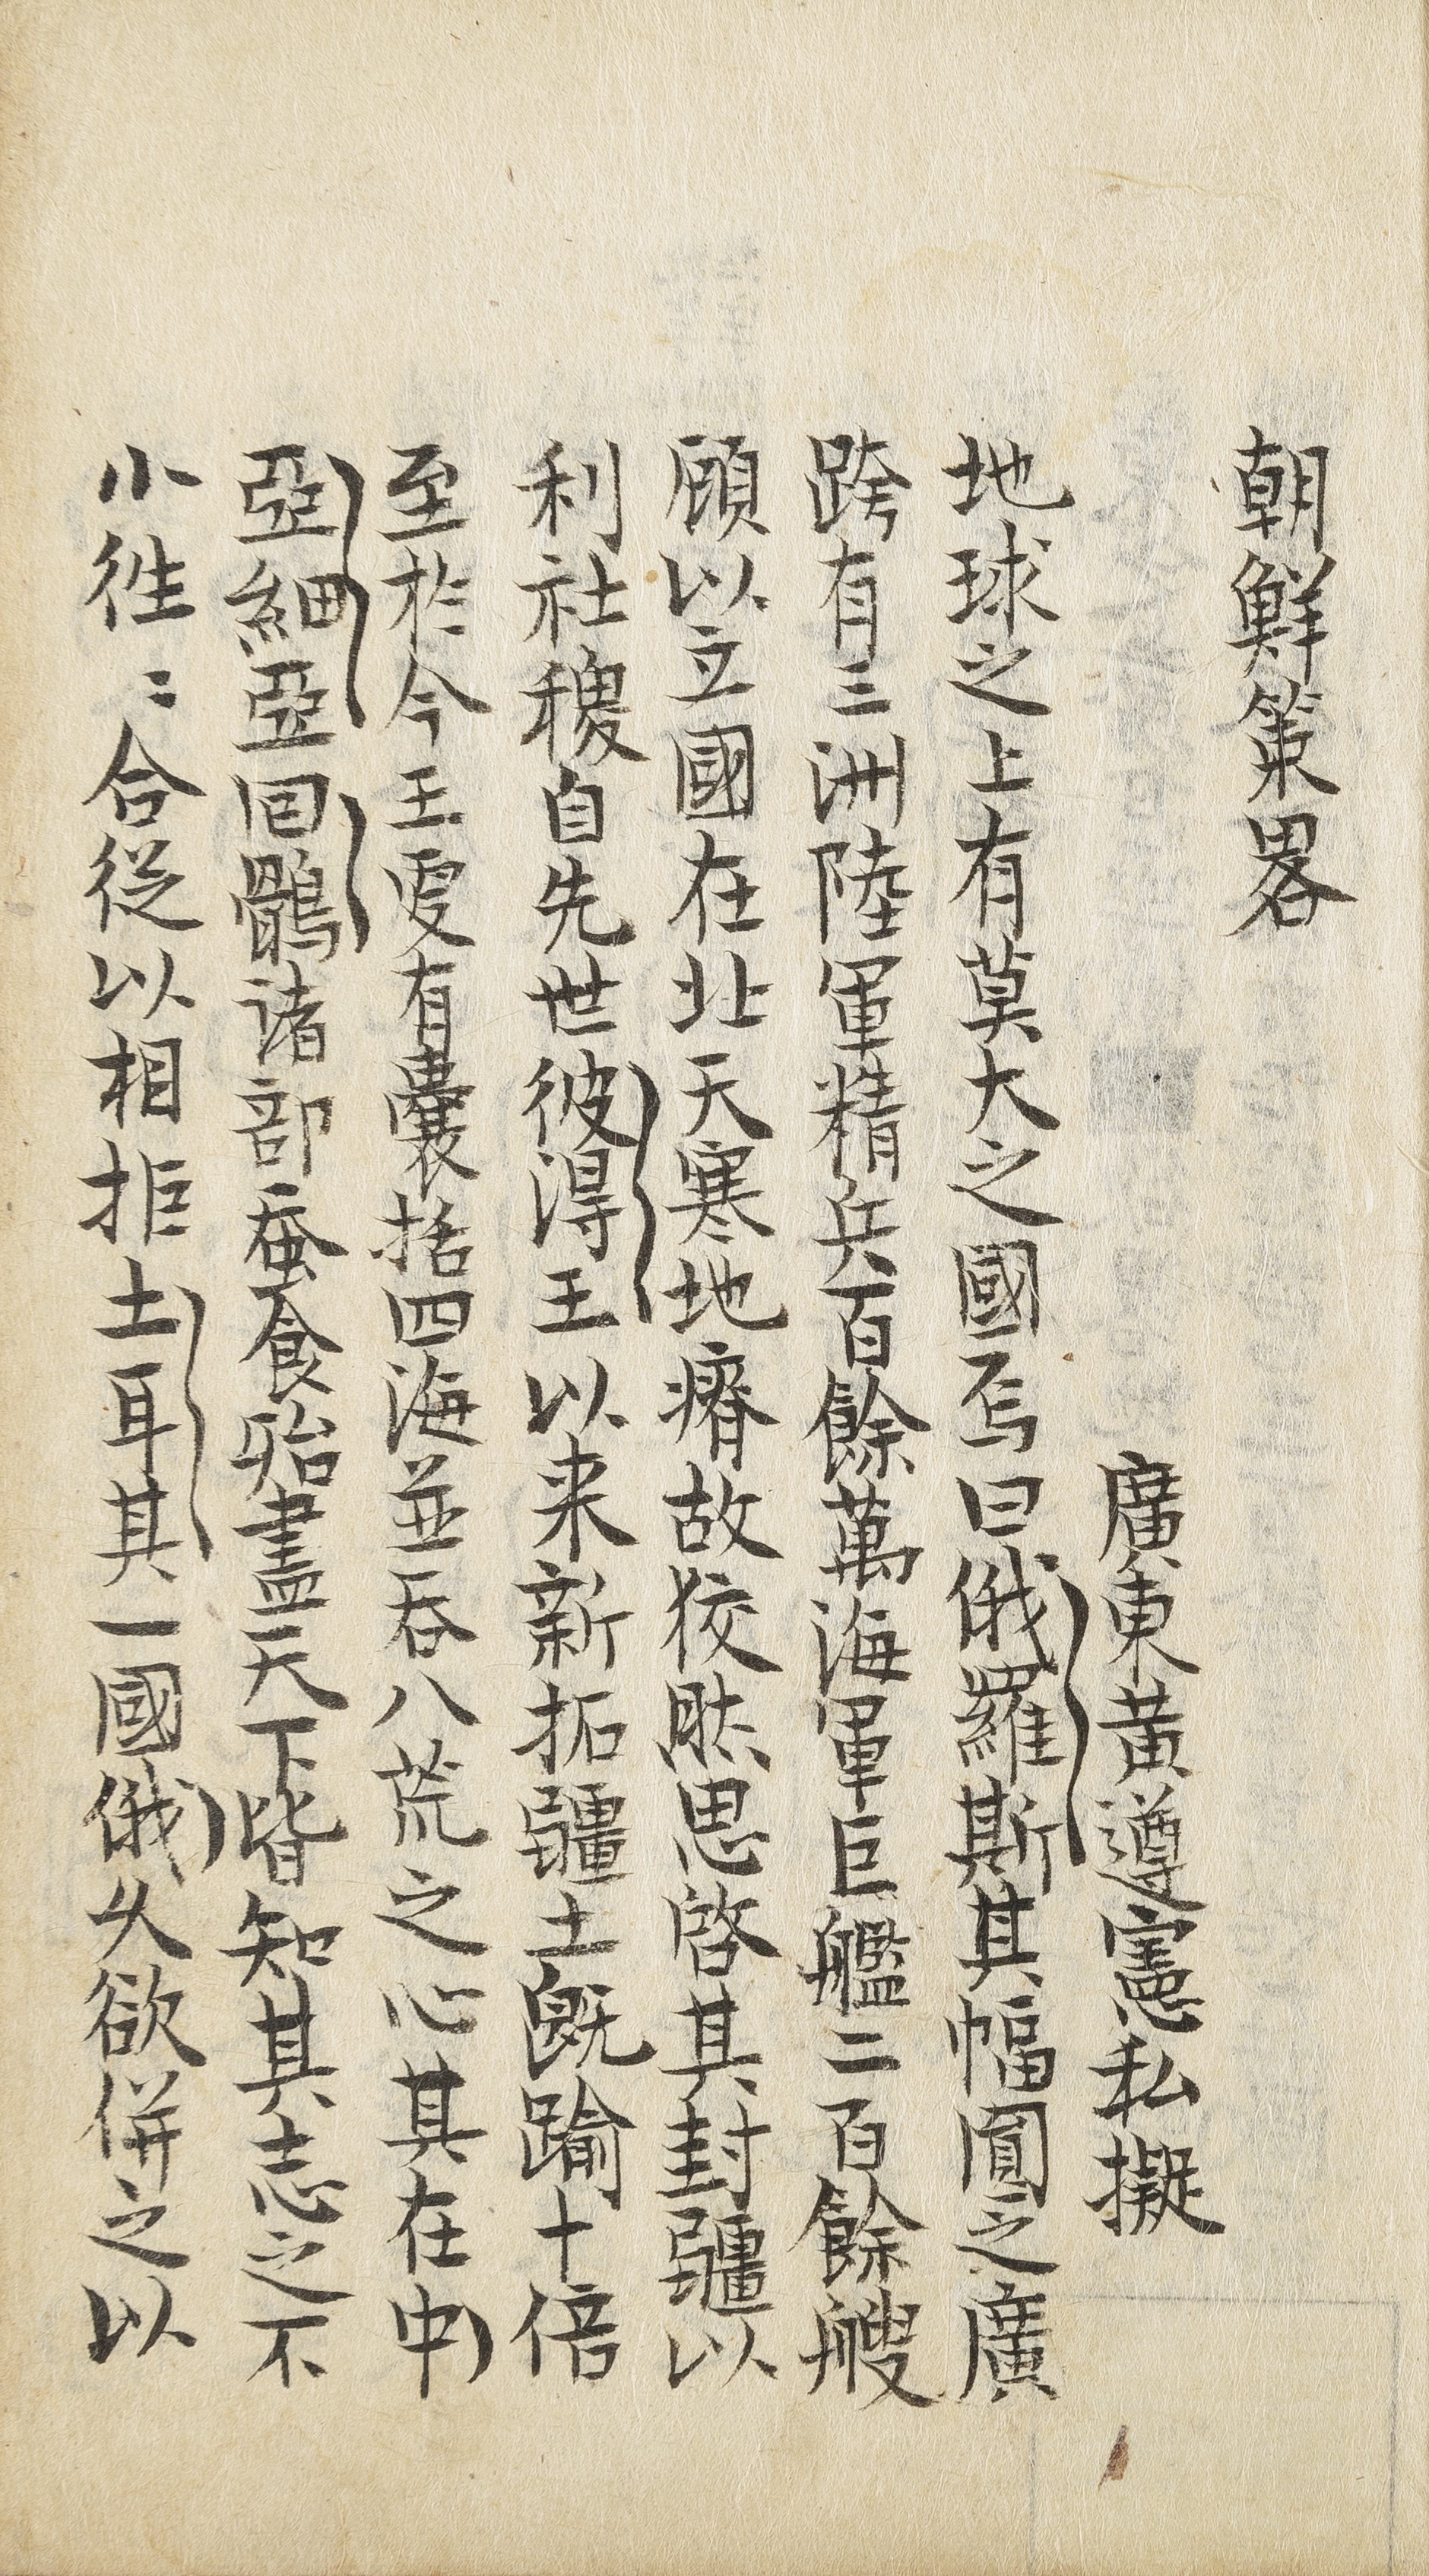 朝鮮策畧
廣東黃遵憲私擬
地球之上有莫大之國焉曰俄羅斯其幅圓之廣
跨有三洲陸軍精兵百餘萬海軍巨艦二百餘艘
顧以立國在北天寒地瘠故狡然思啓其封疆以
利社稷自先世彼得王以来新拓疆土既踰十倍
至於今王更有囊括四海並吞八荒之心其在中
亞細亞回鶻諸部蚕食殆盡天下皆知其志之不
小往〻合從以相拒土耳其一國俄久欲併之以